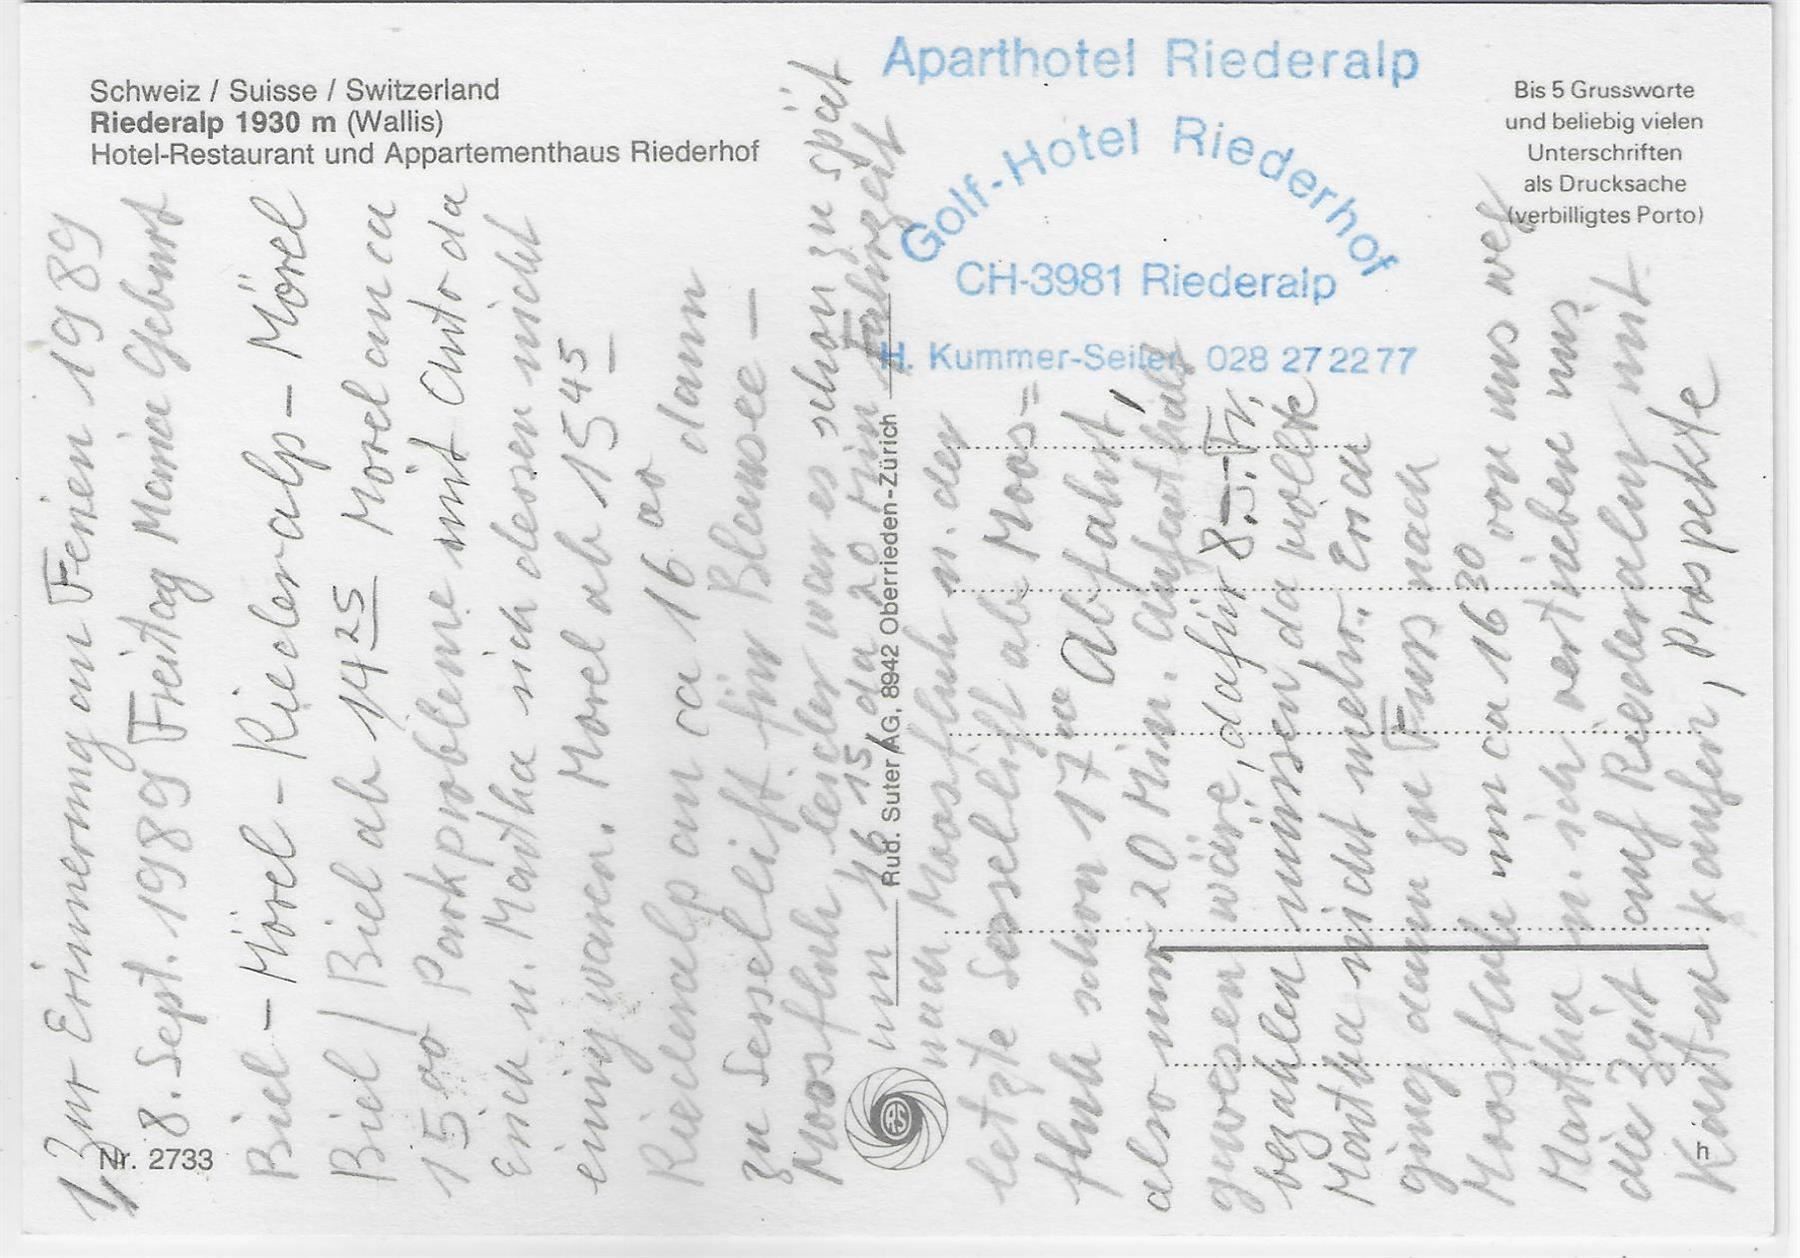 Schweiz / Suisse / Switzerland
Riederalp 1930 m (Wallis)
Hotel-Restaurant und Appartementhaus Riederhof
Aparthotel Riederalp
Golf-Hotel Riederhof
CH-3981 Riederalp
H. Kummer-Seiler 028 27 22 77
Bis 5 Grussworte
und beliebig vielen
Unterschriften
als Drucksache
(verbilligtes Porto)
Rud. Suter AG, 8942 Oberrieden-Zürich
RS
Nr. 2733
h
1, Zur Erinnerung an Ferien 1989
8. Sept. 1989 Freitag Maria Geburt
Biel – Mörel – Riederalp – Mörel
Biel / Biel ab 14 25 Morel an ca
15 00 Parkprobleme mit Auto da
Erich u. Martha sich dessen nicht
einig waren. Morel ab 15 45
Riederalp an ca 16 00 dann
zu Sesselift für Blausee –
Moosfluh leider war es schon zu spät
um 16 15 da 20 Min Fahrzeit
nach Moosfluh u. der
letzte Sesselift ab Moos=
fluh schon 17 00 Abfahrt,
also nur 20 Min. Aufenthalt
gewesen wäre, dafür 8.- Fr.
bezahlen müssen, da wollte
Martha nicht mehr. Erich
ging dann zu Fuss nach
Moosfluh um ca 16 30 von uns weg
Martha u. ich vertrieben uns
die Zeit auf Riederalp mit
Karten kaufen, Prospekte